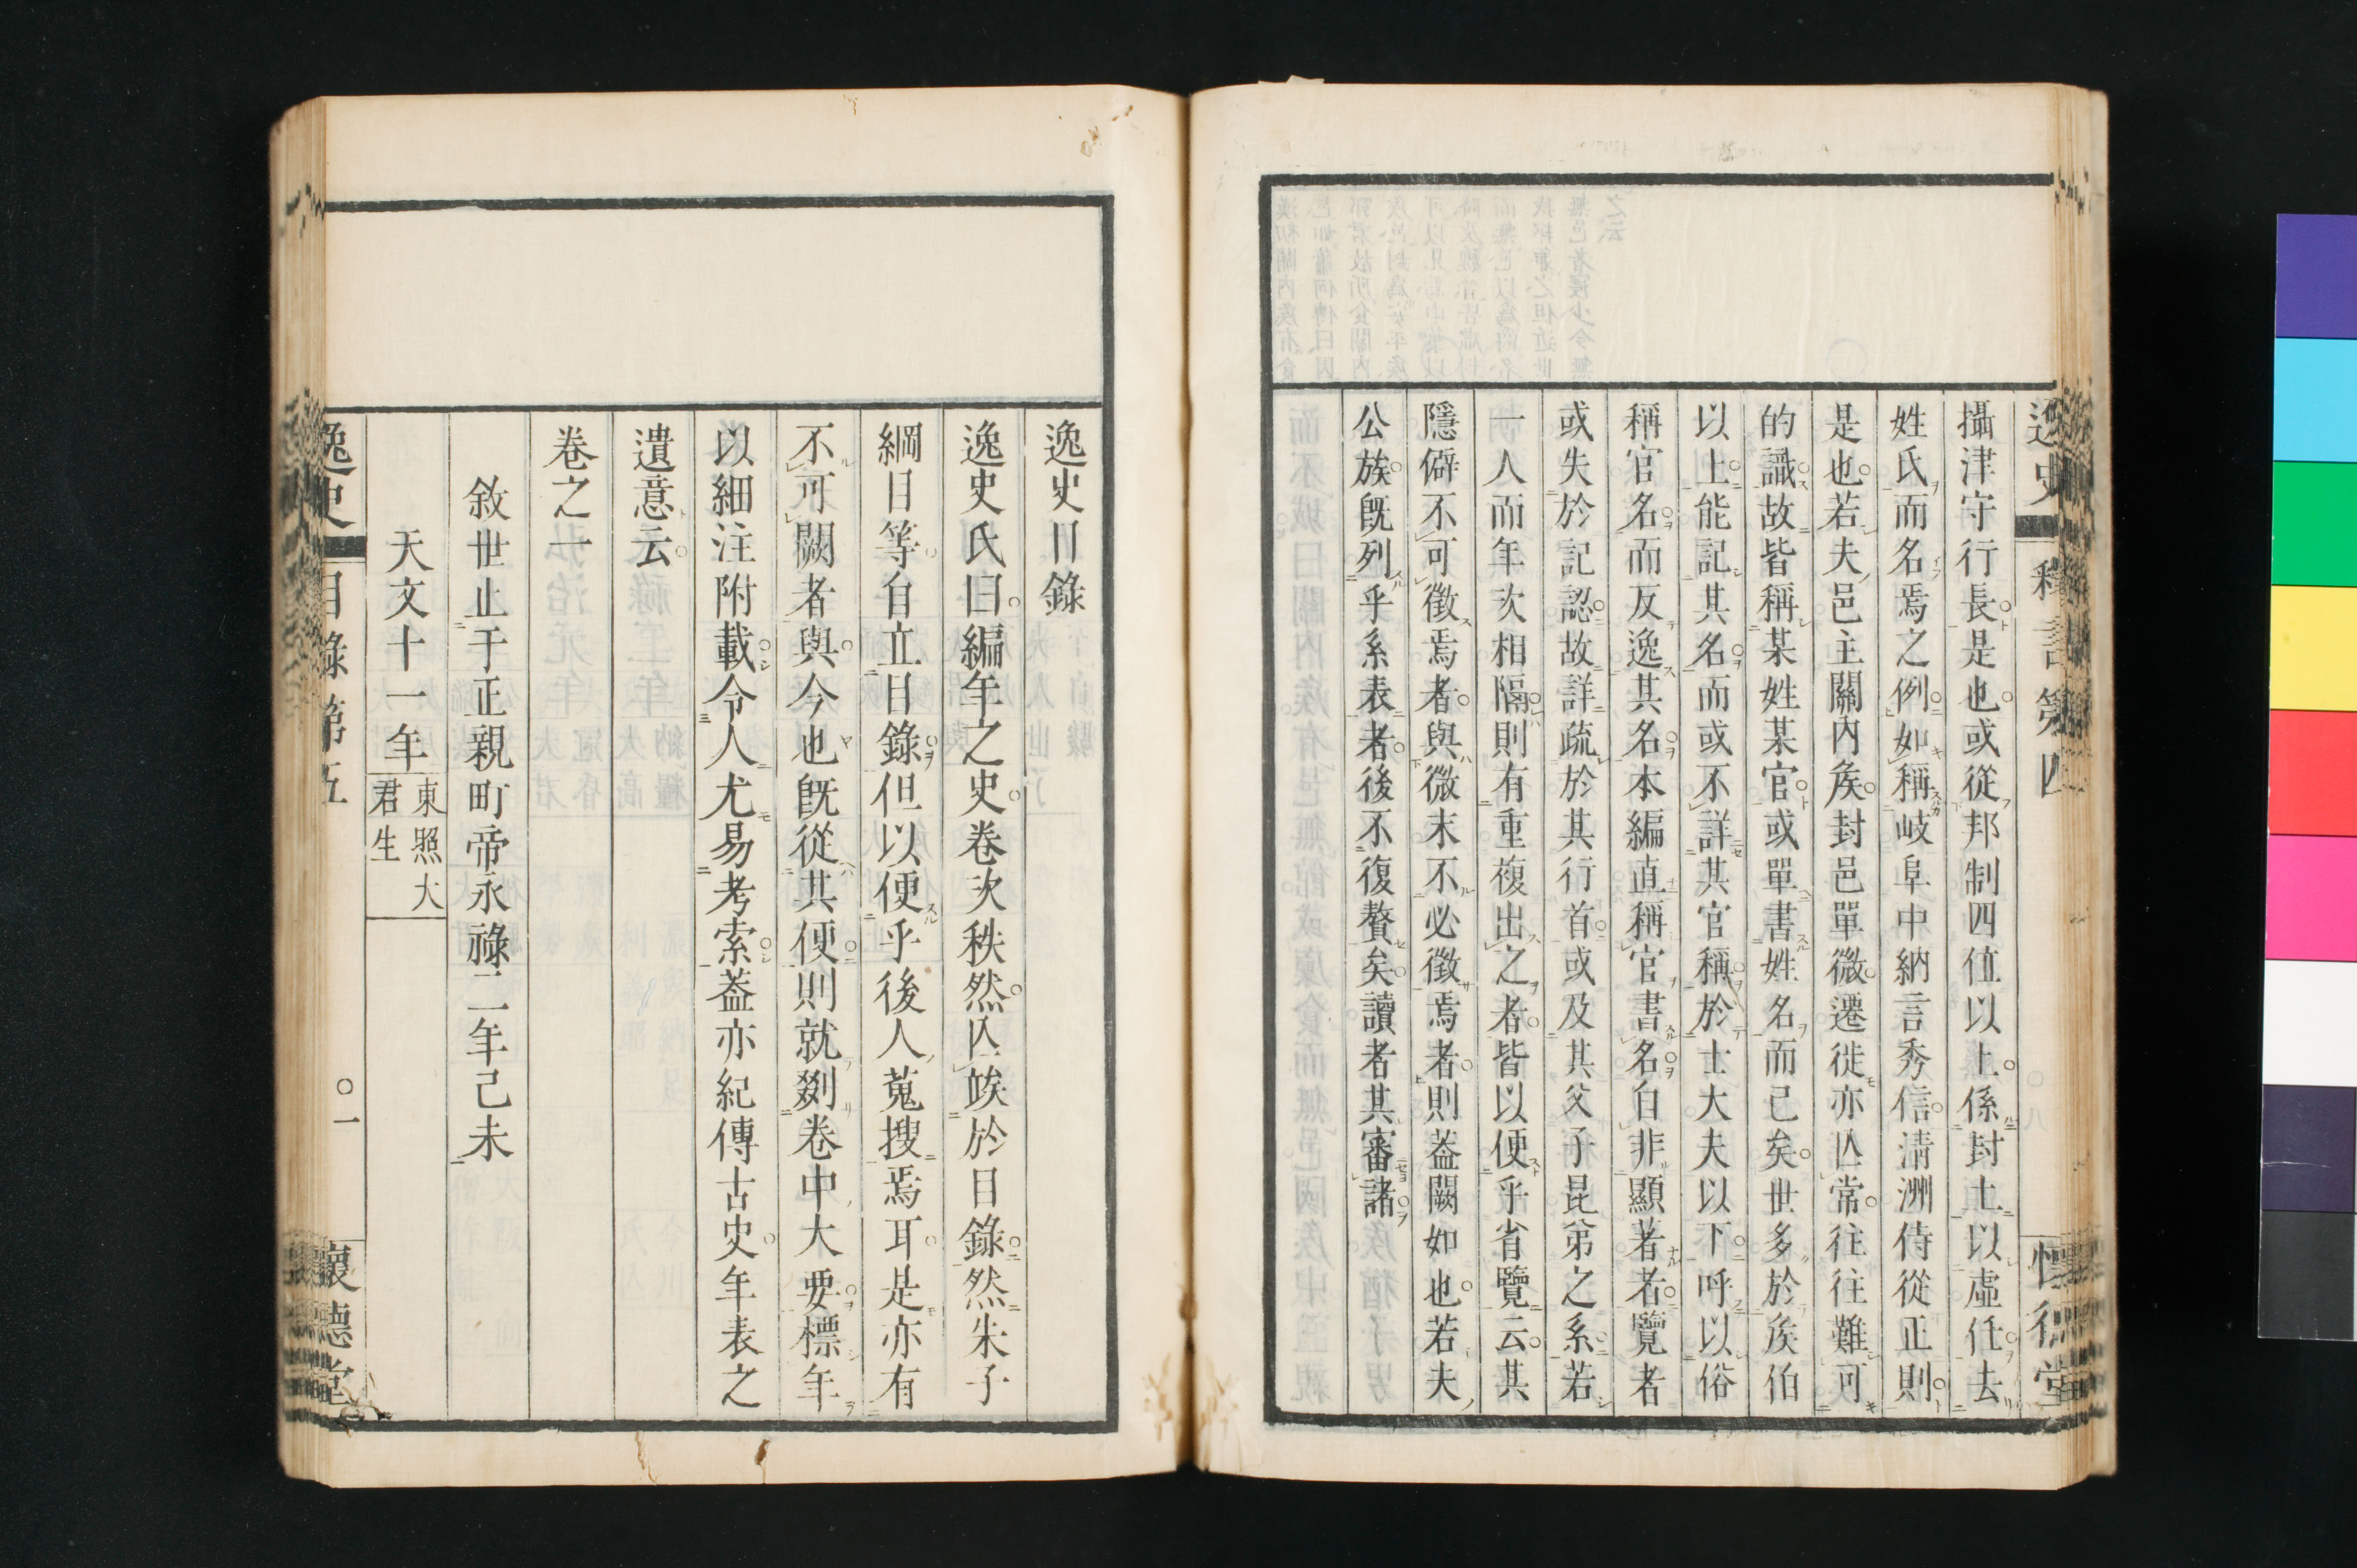 攝津守行長是也或從邦制四位以上係封土以虛任去
姓氏而名焉之例如稱岐阜中納言秀信淸洲侍從正則
是也若夫邑主關內矦封邑單微遷徙亦亾常往往難可
的識故皆稱某姓某官或單書姓名而已矣世多於矦伯
以上能記其名而或不詳其官稱於士大夫以下呼以俗
稱官名而反逸其名本編直稱官書名自非顯著者覽者
或失於記認故詳疏於其行首或及其父子昆弟之系若
一人而年次相隔則有重複出之者皆以便乎省覽云其
隱僻不可徵焉者與微末不必徵焉者則蓋闕如也若夫
公族旣列乎系表者後不復贅矣讀者其審諸
逸史目錄
逸史氏曰編年之史卷次秩然亾竢於目錄然朱子
綱目等自立目錄但以便乎後人蒐搜焉耳是亦有
不可闕者與今也旣從其便則就剟卷中大要標年
以細注附載令人尤易考索蓋亦紀傳古史年表之
遺意云
卷之一
敘世止于正親町帝永祿二年己未
天文十一年 東照大
君生
逸史 目錄第五 〇一 懷德堂